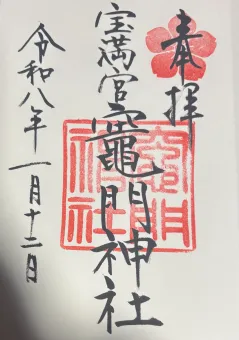 奉拝
宝満宮竈門神社
令和八年一月十二日
竈門神社